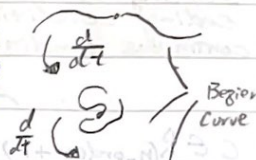 d/dt
d/dt
Bezier
Curve